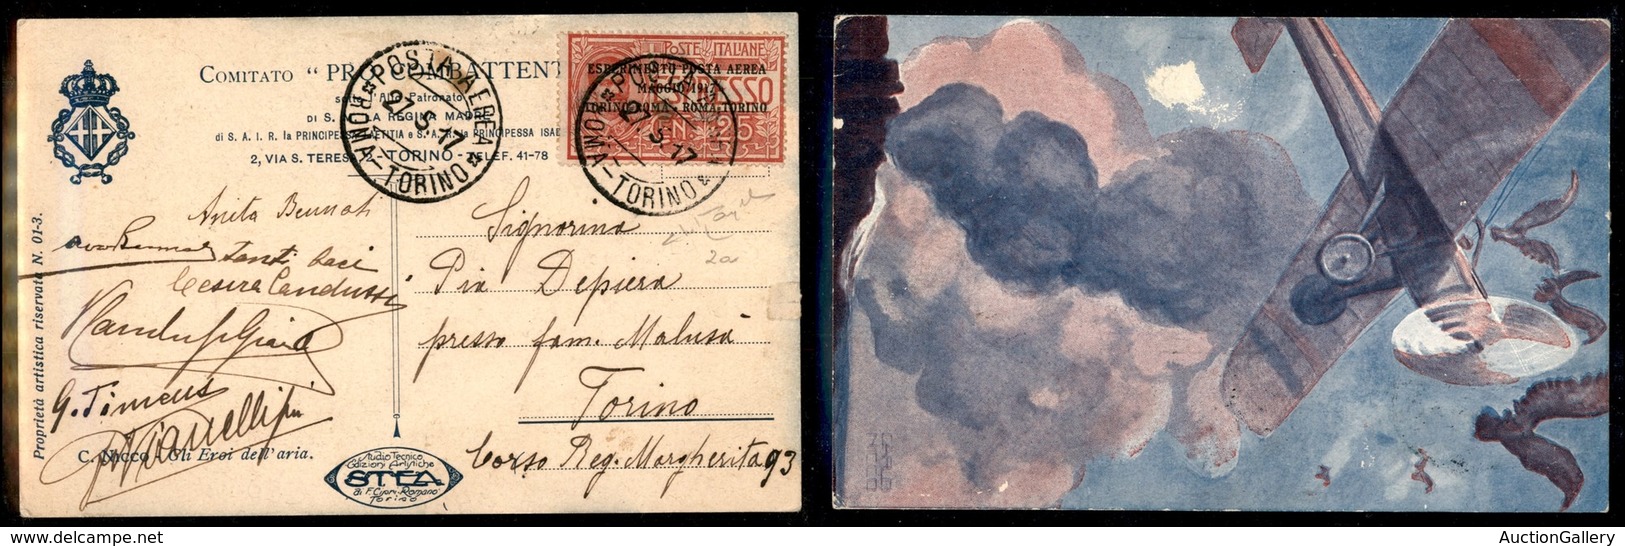 COMITATO " PRO COMBATTENT
sotto l'Alto Patronato
DI S. LA REGINA MADRE
di S. A. I. R. la PRINCIPESSA LAETITIA e S. A. R. la PRINCIPESSA ISAB
2, VIA S. TERESA, 2 - TORINO - TELEF. 41-78
POSTE ITALIANE
ESPERIMENTO POSTA AEREA
MAGGIO 1917
TORINO-ROMA · ROMA-TORINO
ESPRESSO
CEN. 25
POSTA AEREA
27.5.17
ROMA-TORINO
POSTA AEREA
27.5.17
ROMA-TORINO
Anita Bennati
Santi Baci
Cesira Candussi
G. Timeus
Signorina
Pia Depiera
presso fam. Malusà
Torino
Corso Reg. Margherita 93
2a
Proprietà artistica riservata N. 01-3.
C. Nicco - Gli Eroi dell'aria.
Studio Tecnico
Edizioni Artistiche
STEA
di F. Cipri-Romanò
Torino
AuctionGallery